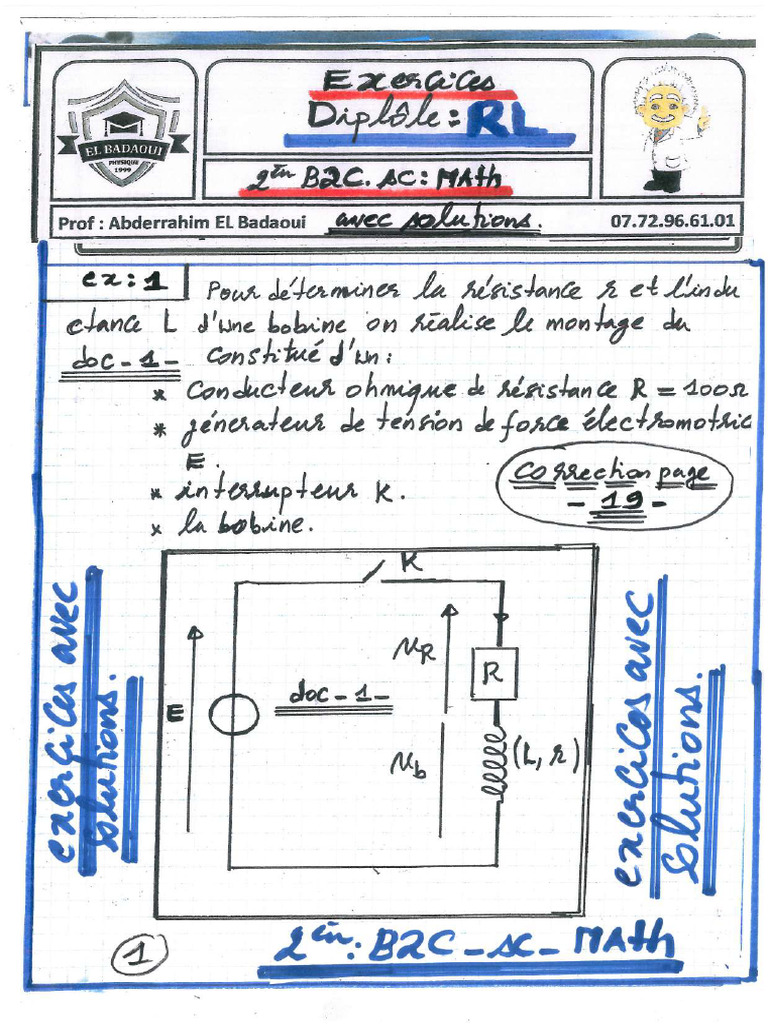 Exercices
Diplôle: RL
EL BADAOUI
PHYSIQUE
1999
2 èm B2C. SC: MAth
Prof : Abderrahim EL Badaoui
avec solutions.
07.72.96.61.01
ex: 1
Pour déterminer la résistance r et l'indu
ctance L d'une bobine on réalise le montage du
doc - 1 - constitué d'un:
* conducteur ohmique de résistance R = 100Ω
* génerateur de tension de force électromotric
E.
* interrupteur K.
* la bobine.
correction page
- 19 -
K
uR
R
doc - 1 -
E
ub
(L, r)
exercices avec
solutions.
exercices avec
solutions.
1
2 èm: B2C - SC - MAth